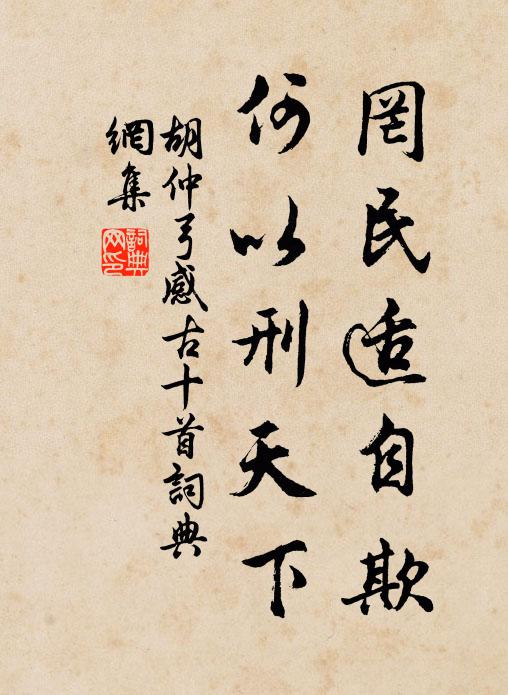 罔民适自欺
何以刑天下
胡仲弓感古十首詞典
網集
詞典網印